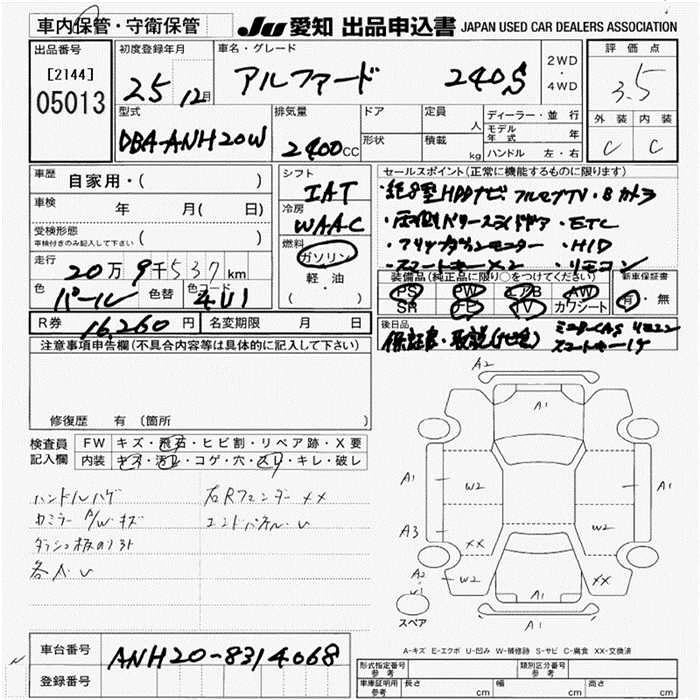 車内保管・守衛保管 JU 愛知 出品申込書 JAPAN USED CAR DEALERS ASSOCIATION
出品番号
[2144]
05013
初度登録年月
25 12月
車名・グレード
アルファード 240S
2WD
・
4WD
評価点
3.5
外装 内装
C C
型式
DBA-ANH20W
排気量
2400CC
ドア
形状
定員 人
積載 kg
ディーラー・並行
モデル年式 年
ハンドル 左・右
車歴 自家用・( )
車検 年 月( 日)
受検形態
車検付きのみ記入して下さい ( )
走行
20万9千537km
色 パール 色替 色コード 4U1
シフト
IAT
冷房
WAAC
燃料
ガソリン
・
軽・油
( )
セールスポイント(正常に機能するものに限ります)
・純8型HDDナビ・フルセグTV・Bカメラ
・両側パワースライドドア・ETC
・フリップダウンモニター・HID
・スマートキー×2・リモコン
装備品(純正品に限り○をつけてください)
PS PW エアB AW
SR ナビ TV カワシート
新車保証書
有・無
後日品
R券 16,260円 名変期限 月 日
注意事項申告欄(不具合内容等は具体的に記入して下さい)
修復歴 有(箇所 )
検査員記入欄
FW キズ・飛石・ヒビ割・リペア跡・X要
内装 キズ・汚レ・コゲ・穴・スレ・キレ・破レ
ハンドルハゲ 右Rフェンダー XX
エンドパネル U
各人U
A2
A1
A1 W2 W2 A1
A3 XX
A2 W2 A1 XX
スペア
A1
A-キズ E-エクボ U-凹み W-補修跡 S-サビ C-腐食 XX-交換済
車台番号 ANH20-8314068
登録番号
形式指定番号 参考
類別区分番号 参考
車庫証明用 参考 長さ cm 幅 cm 高さ cm